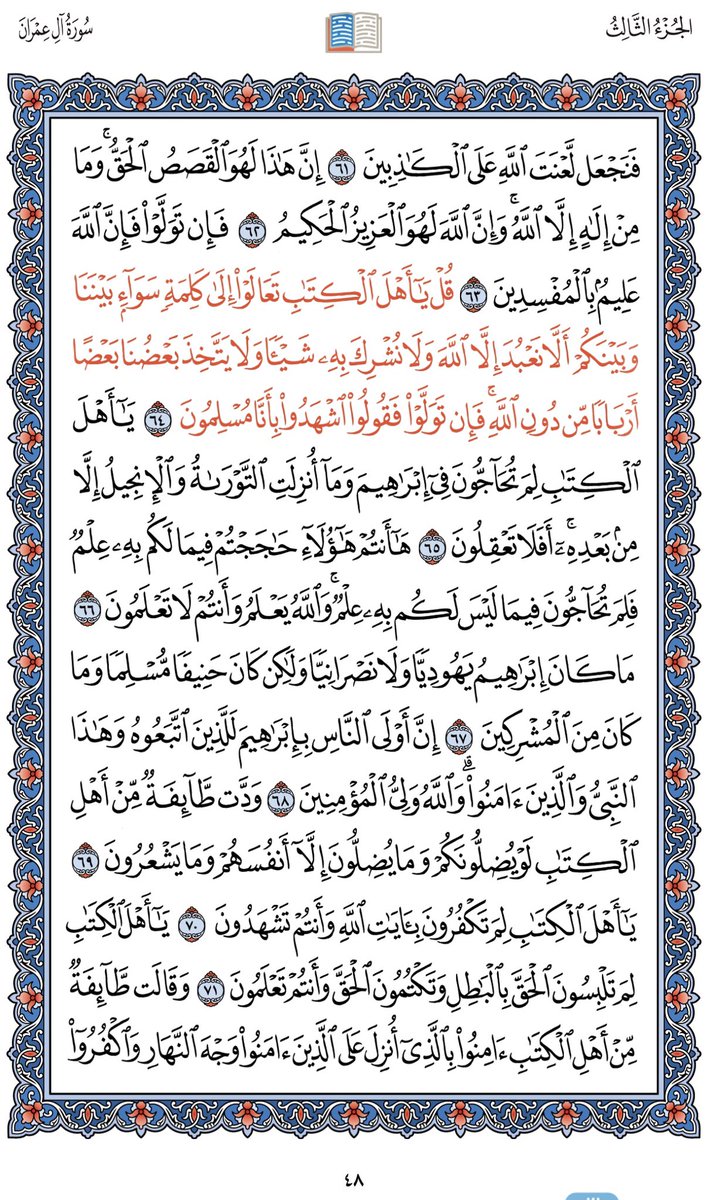 الجُزْءُ الثَّالِثُ
سُورَةُ آلِ عِمْرَانَ
فَنَجْعَل لَّعْنَتَ ٱللَّهِ عَلَى ٱلْكَـٰذِبِينَ ٦١ إِنَّ هَـٰذَا لَهُوَ ٱلْقَصَصُ ٱلْحَقُّ ۚ وَمَا
مِنْ إِلَـٰهٍ إِلَّا ٱللَّهُ ۚ وَإِنَّ ٱللَّهَ لَهُوَ ٱلْعَزِيزُ ٱلْحَكِيمُ ٦٢ فَإِن تَوَلَّوْا۟ فَإِنَّ ٱللَّهَ
عَلِيمٌۢ بِٱلْمُفْسِدِينَ ٦٣ قُلْ يَـٰٓأَهْلَ ٱلْكِتَـٰبِ تَعَالَوْا۟ إِلَىٰ كَلِمَةٍ سَوَآءٍۭ بَيْنَنَا
وَبَيْنَكُمْ أَلَّا نَعْبُدَ إِلَّا ٱللَّهَ وَلَا نُشْرِكَ بِهِۦ شَيْـًٔا وَلَا يَتَّخِذَ بَعْضُنَا بَعْضًا
أَرْبَابًا مِّن دُونِ ٱللَّهِ ۚ فَإِن تَوَلَّوْا۟ فَقُولُوا۟ ٱشْهَدُوا۟ بِأَنَّا مُسْلِمُونَ ٦٤ يَـٰٓأَهْلَ
ٱلْكِتَـٰبِ لِمَ تُحَآجُّونَ فِىٓ إِبْرَٰهِيمَ وَمَآ أُنزِلَتِ ٱلتَّوْرَىٰةُ وَٱلْإِنجِيلُ إِلَّا
مِنۢ بَعْدِهِۦٓ ۚ أَفَلَا تَعْقِلُونَ ٦٥ هَـٰٓأَنتُمْ هَـٰٓؤُلَآءِ حَـٰجَجْتُمْ فِيمَا لَكُم بِهِۦ عِلْمٌ
فَلِمَ تُحَآجُّونَ فِيمَا لَيْسَ لَكُم بِهِۦ عِلْمٌ ۚ وَٱللَّهُ يَعْلَمُ وَأَنتُمْ لَا تَعْلَمُونَ ٦٦
مَا كَانَ إِبْرَٰهِيمُ يَهُودِيًّا وَلَا نَصْرَانِيًّا وَلَـٰكِن كَانَ حَنِيفًا مُّسْلِمًا وَمَا
كَانَ مِنَ ٱلْمُشْرِكِينَ ٦٧ إِنَّ أَوْلَى ٱلنَّاسِ بِإِبْرَٰهِيمَ لَلَّذِينَ ٱتَّبَعُوهُ وَهَـٰذَا
ٱلنَّبِىُّ وَٱلَّذِينَ ءَامَنُوا۟ ۗ وَٱللَّهُ وَلِىُّ ٱلْمُؤْمِنِينَ ٦٨ وَدَّت طَّآئِفَةٌ مِّنْ أَهْلِ
ٱلْكِتَـٰبِ لَوْ يُضِلُّونَكُمْ وَمَا يُضِلُّونَ إِلَّآ أَنفُسَهُمْ وَمَا يَشْعُرُونَ ٦٩
يَـٰٓأَهْلَ ٱلْكِتَـٰبِ لِمَ تَكْفُرُونَ بِـَٔايَـٰتِ ٱللَّهِ وَأَنتُمْ تَشْهَدُونَ ٧٠ يَـٰٓأَهْلَ ٱلْكِتَـٰبِ
لِمَ تَلْبِسُونَ ٱلْحَقَّ بِٱلْبَـٰطِلِ وَتَكْتُمُونَ ٱلْحَقَّ وَأَنتُمْ تَعْلَمُونَ ٧١ وَقَالَت طَّآئِفَةٌ
مِّنْ أَهْلِ ٱلْكِتَـٰبِ ءَامِنُوا۟ بِٱلَّذِىٓ أُنزِلَ عَلَى ٱلَّذِينَ ءَامَنُوا۟ وَجْهَ ٱلنَّهَارِ وَٱكْفُرُوٓا۟
٤٨